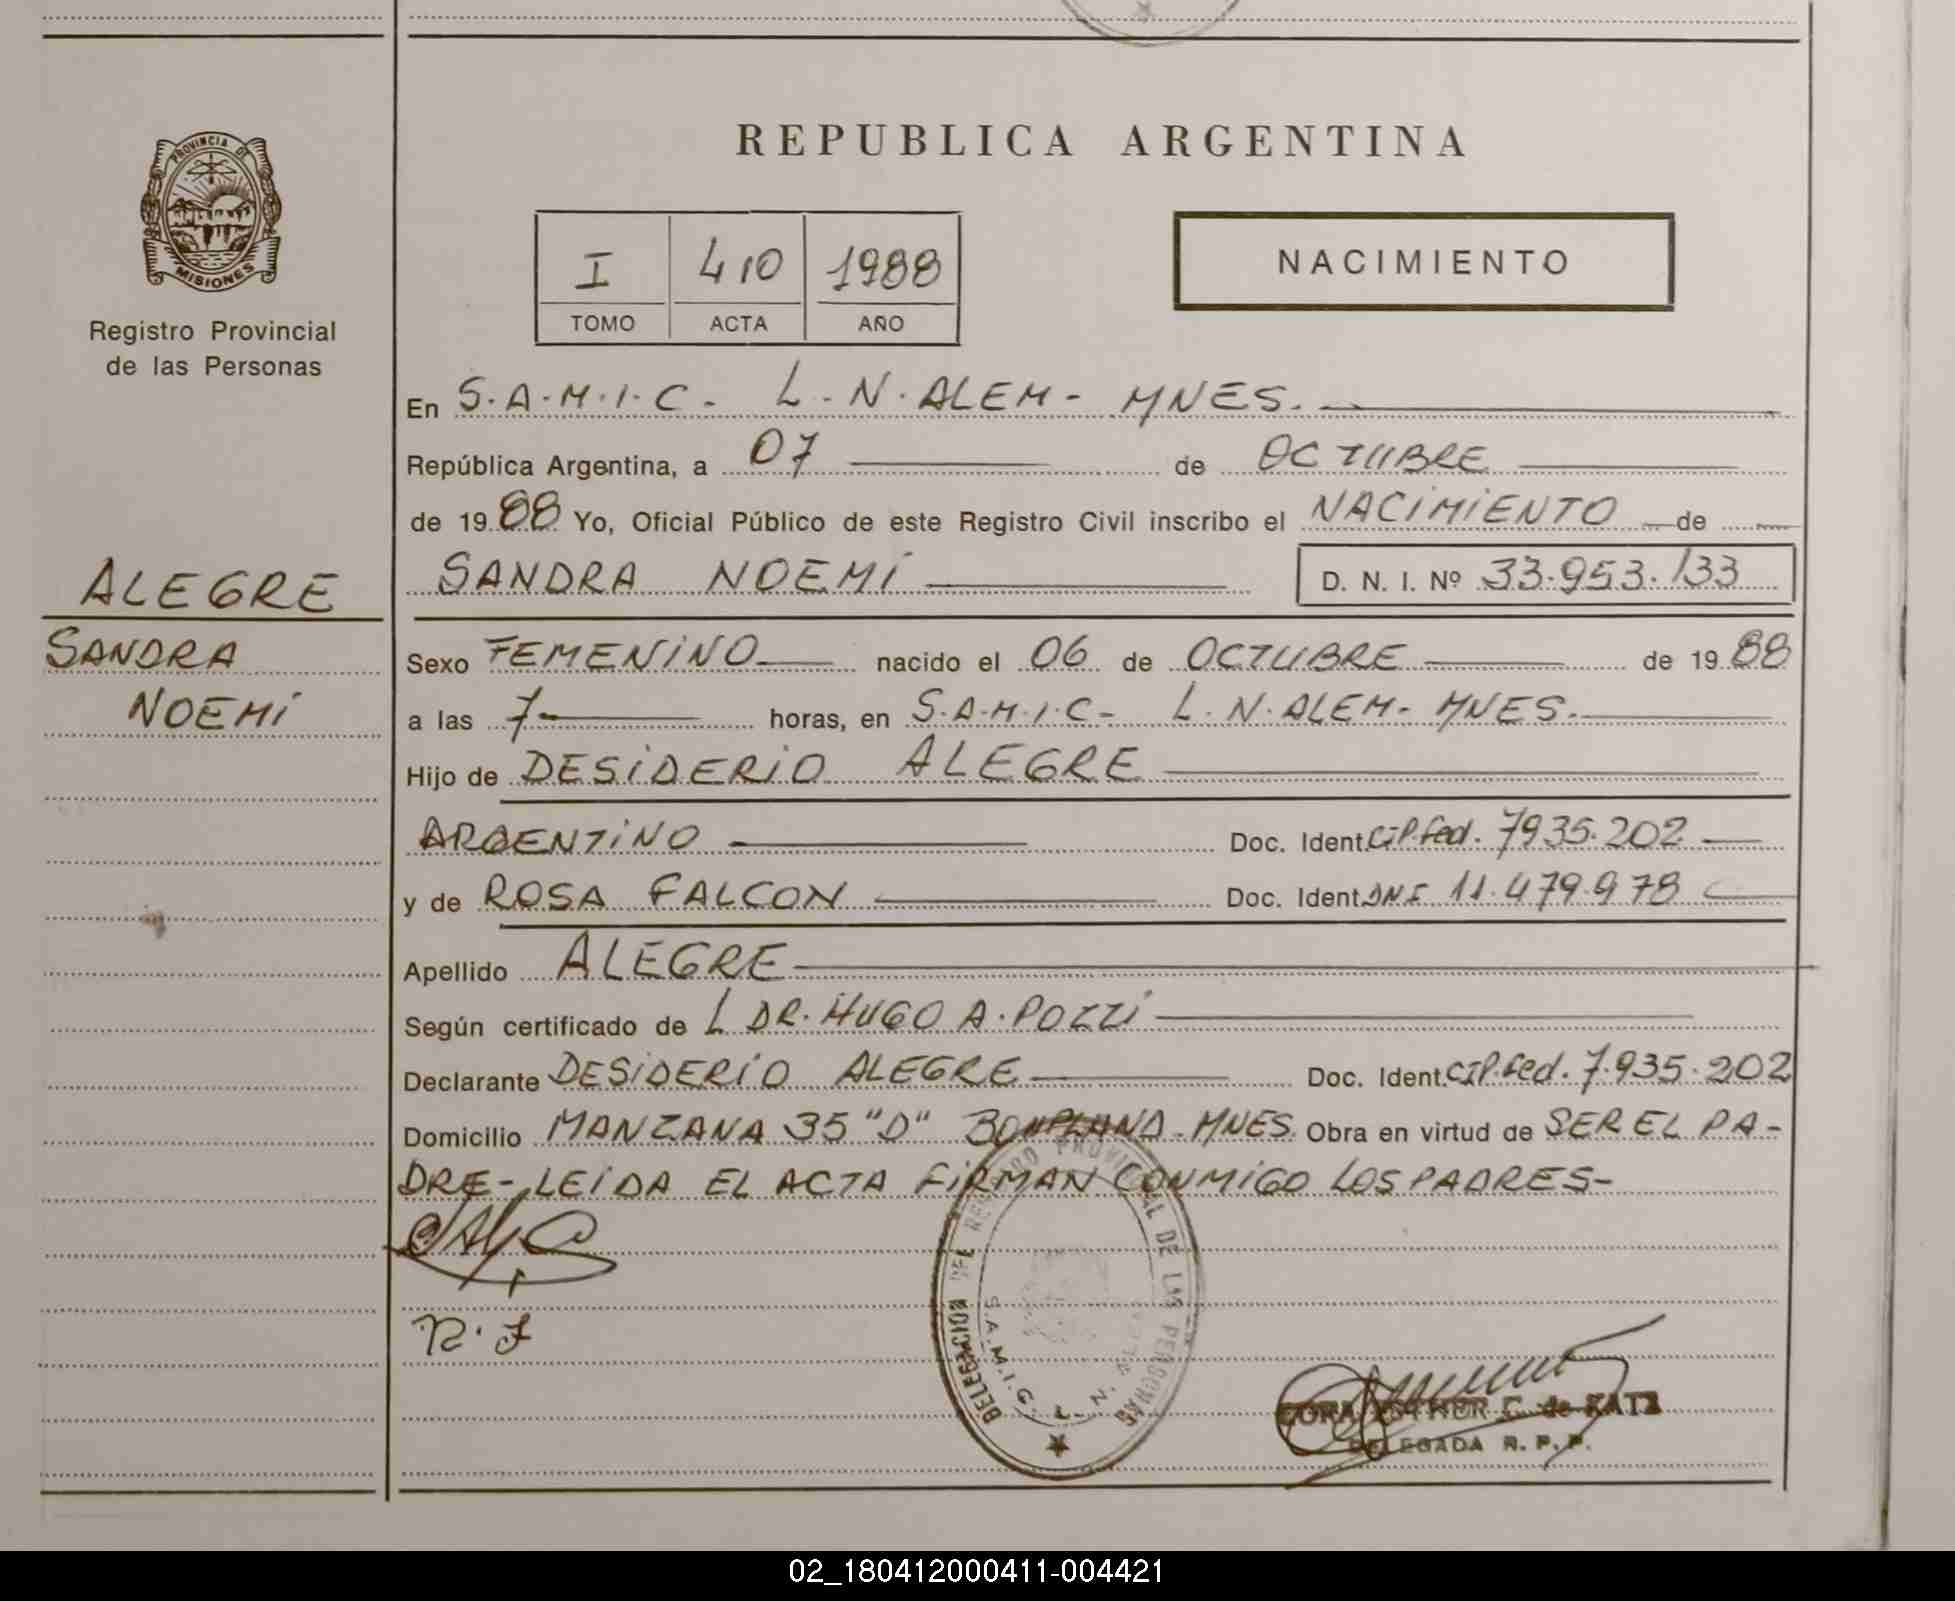 PROVINCIA DE
MISIONES
Registro Provincial
de las Personas
ALEGRE
SANDRA
NOEMÍ
REPUBLICA ARGENTINA
I 410 1988
TOMO ACTA AÑO
NACIMIENTO
En S.A.M.I.C- L.N.ALEM- MNES.
República Argentina, a 07 de OCTUBRE
de 1988 Yo, Oficial Público de este Registro Civil inscribo el NACIMIENTO de
SANDRA NOEMÍ D. N. I. Nº 33.953.133
Sexo FEMENINO nacido el 06 de OCTUBRE de 1988
a las 7 horas, en S.A.M.I.C- L.N.ALEM- MNES.
Hijo de DESIDERIO ALEGRE
ARGENTINO Doc. Ident. CIP.fed. 7935.202
y de ROSA FALCON Doc. Ident. DNI 11.479.978
Apellido ALEGRE
Según certificado de L DR. HUGO A. POZZI
Declarante DESIDERIO ALEGRE Doc. Ident. CIP.fed. 7.935.202
Domicilio MANZANA 35 "D" BONPLAND-MNES. Obra en virtud de SER EL PA-
DRE- LEIDA EL ACTA FIRMAN CONMIGO LOS PADRES-
R. F
DELEGACION DEL REGISTRO PROVINCIAL DE LAS PERSONAS
S.A.M.I.C. L. N. ALEM
ESTHER C. de KATZ
DELEGADA R. P. P.
02_180412000411-004421